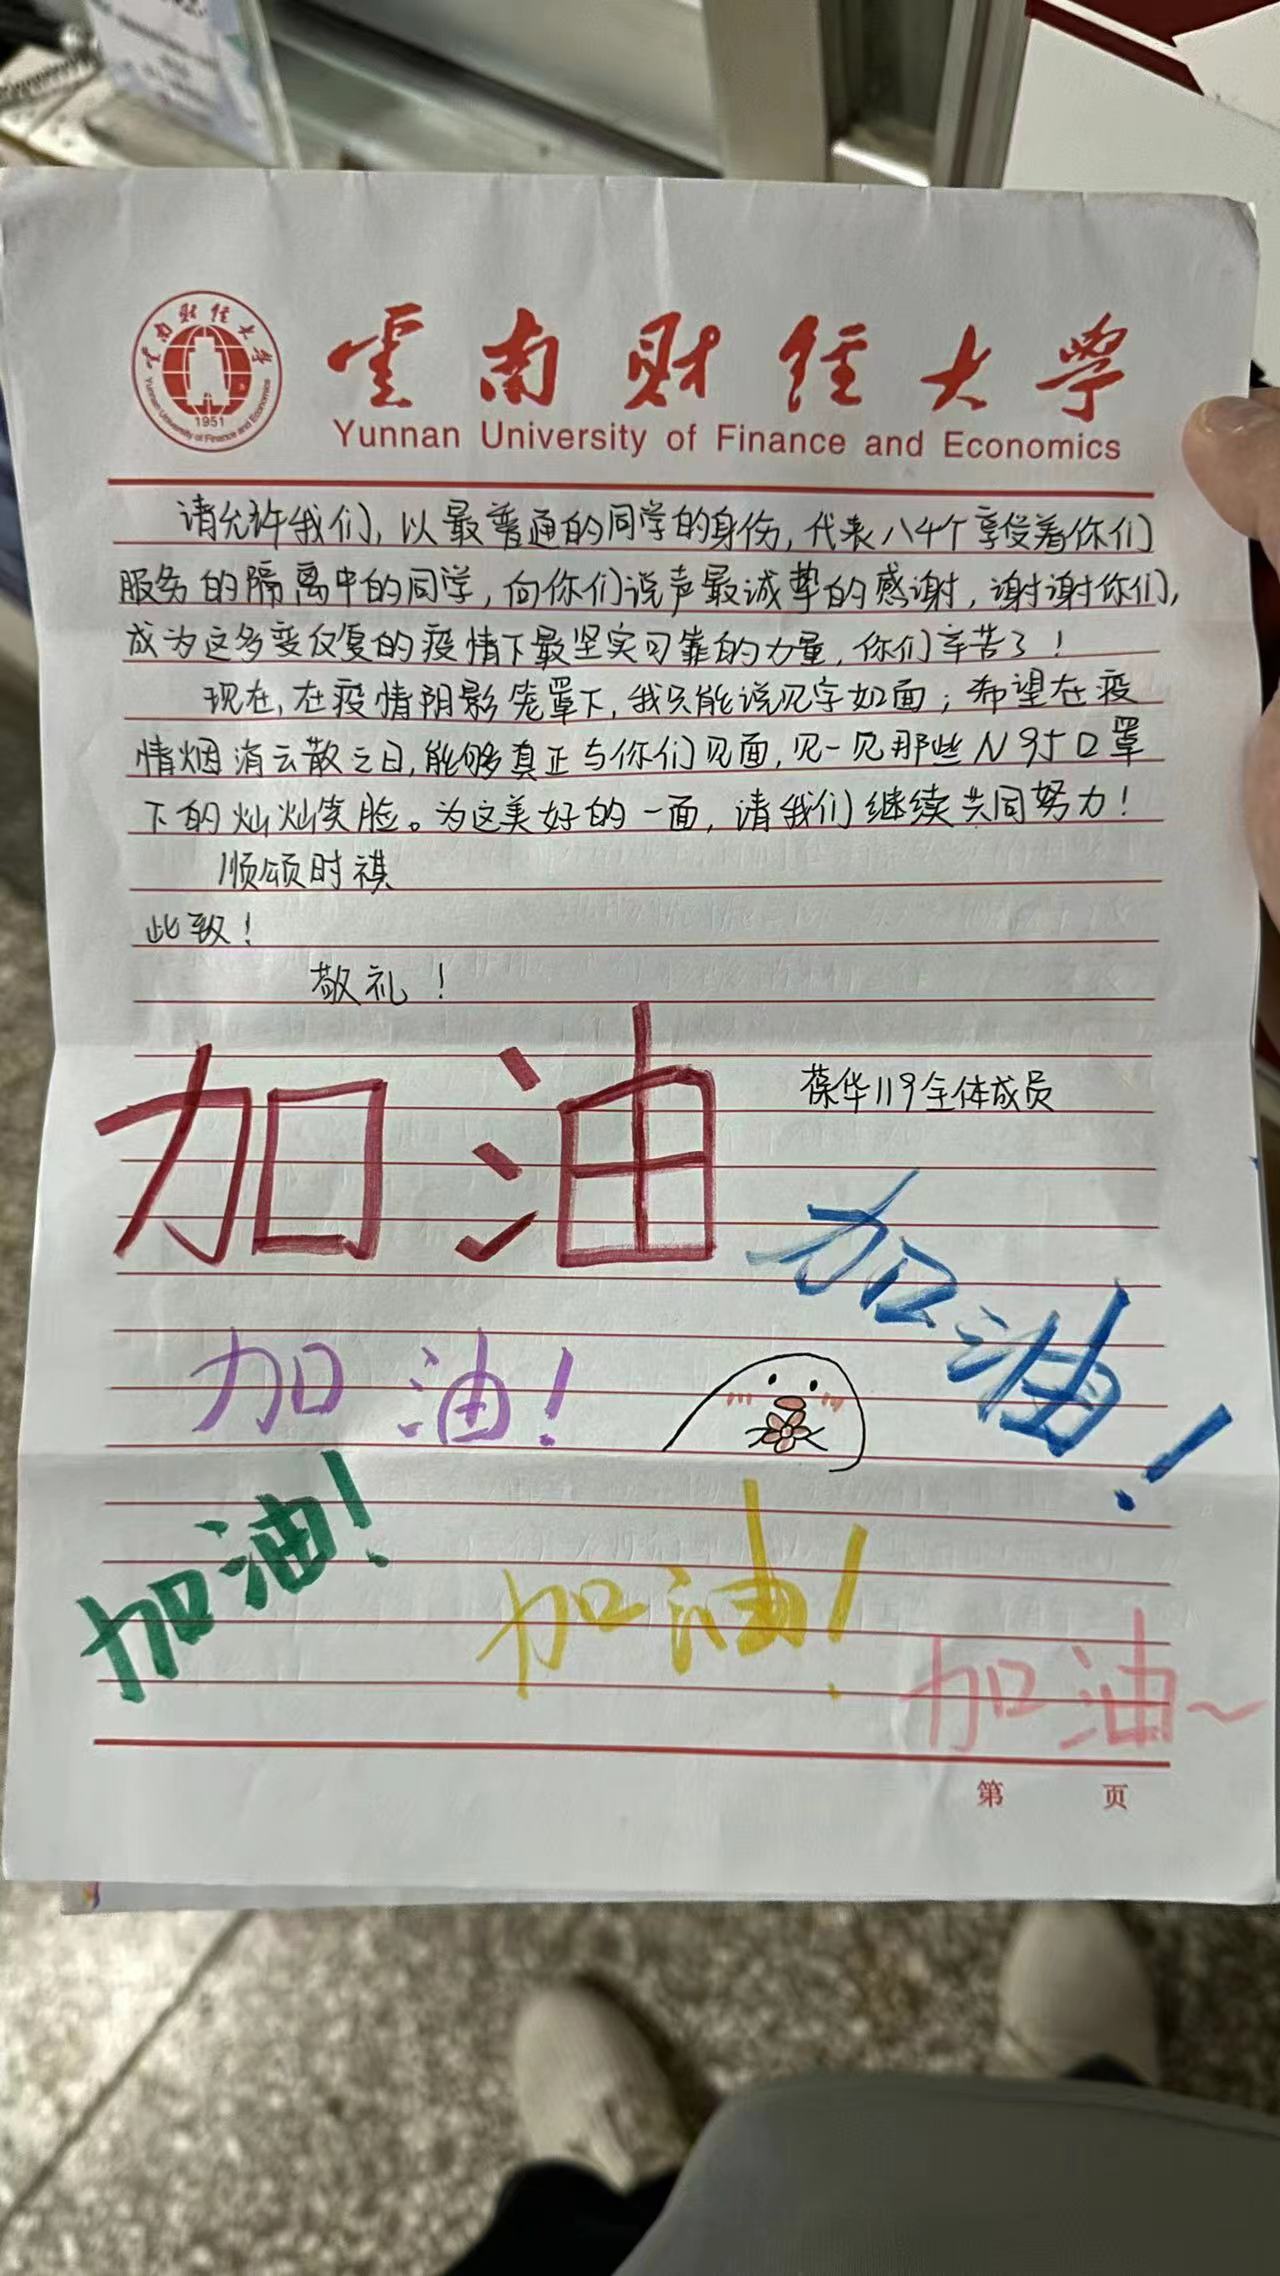 雲南财经大學
Yunnan University of Finance and Economics
云南财经大学
Yunnan University of Finance and Economics
1951
请允许我们，以最普通的同学的身份，代表八4个享受着你们
服务的隔离中的同学，向你们说声最诚挚的感谢，谢谢你们，
成为这多变反复的疫情下最坚实可靠的力量，你们辛苦了！
现在，在疫情阴影笼罩下，我只能说见字如面；希望在疫
情烟消云散之日，能够真正与你们见面，见一见那些N95口罩
下的灿灿笑脸。为这美好的一面，请我们继续共同努力！
顺颂时祺
此致！
敬礼！
葆华119全体成员
加油
加油！
加油！
加油！
加油！
加油～
第 页